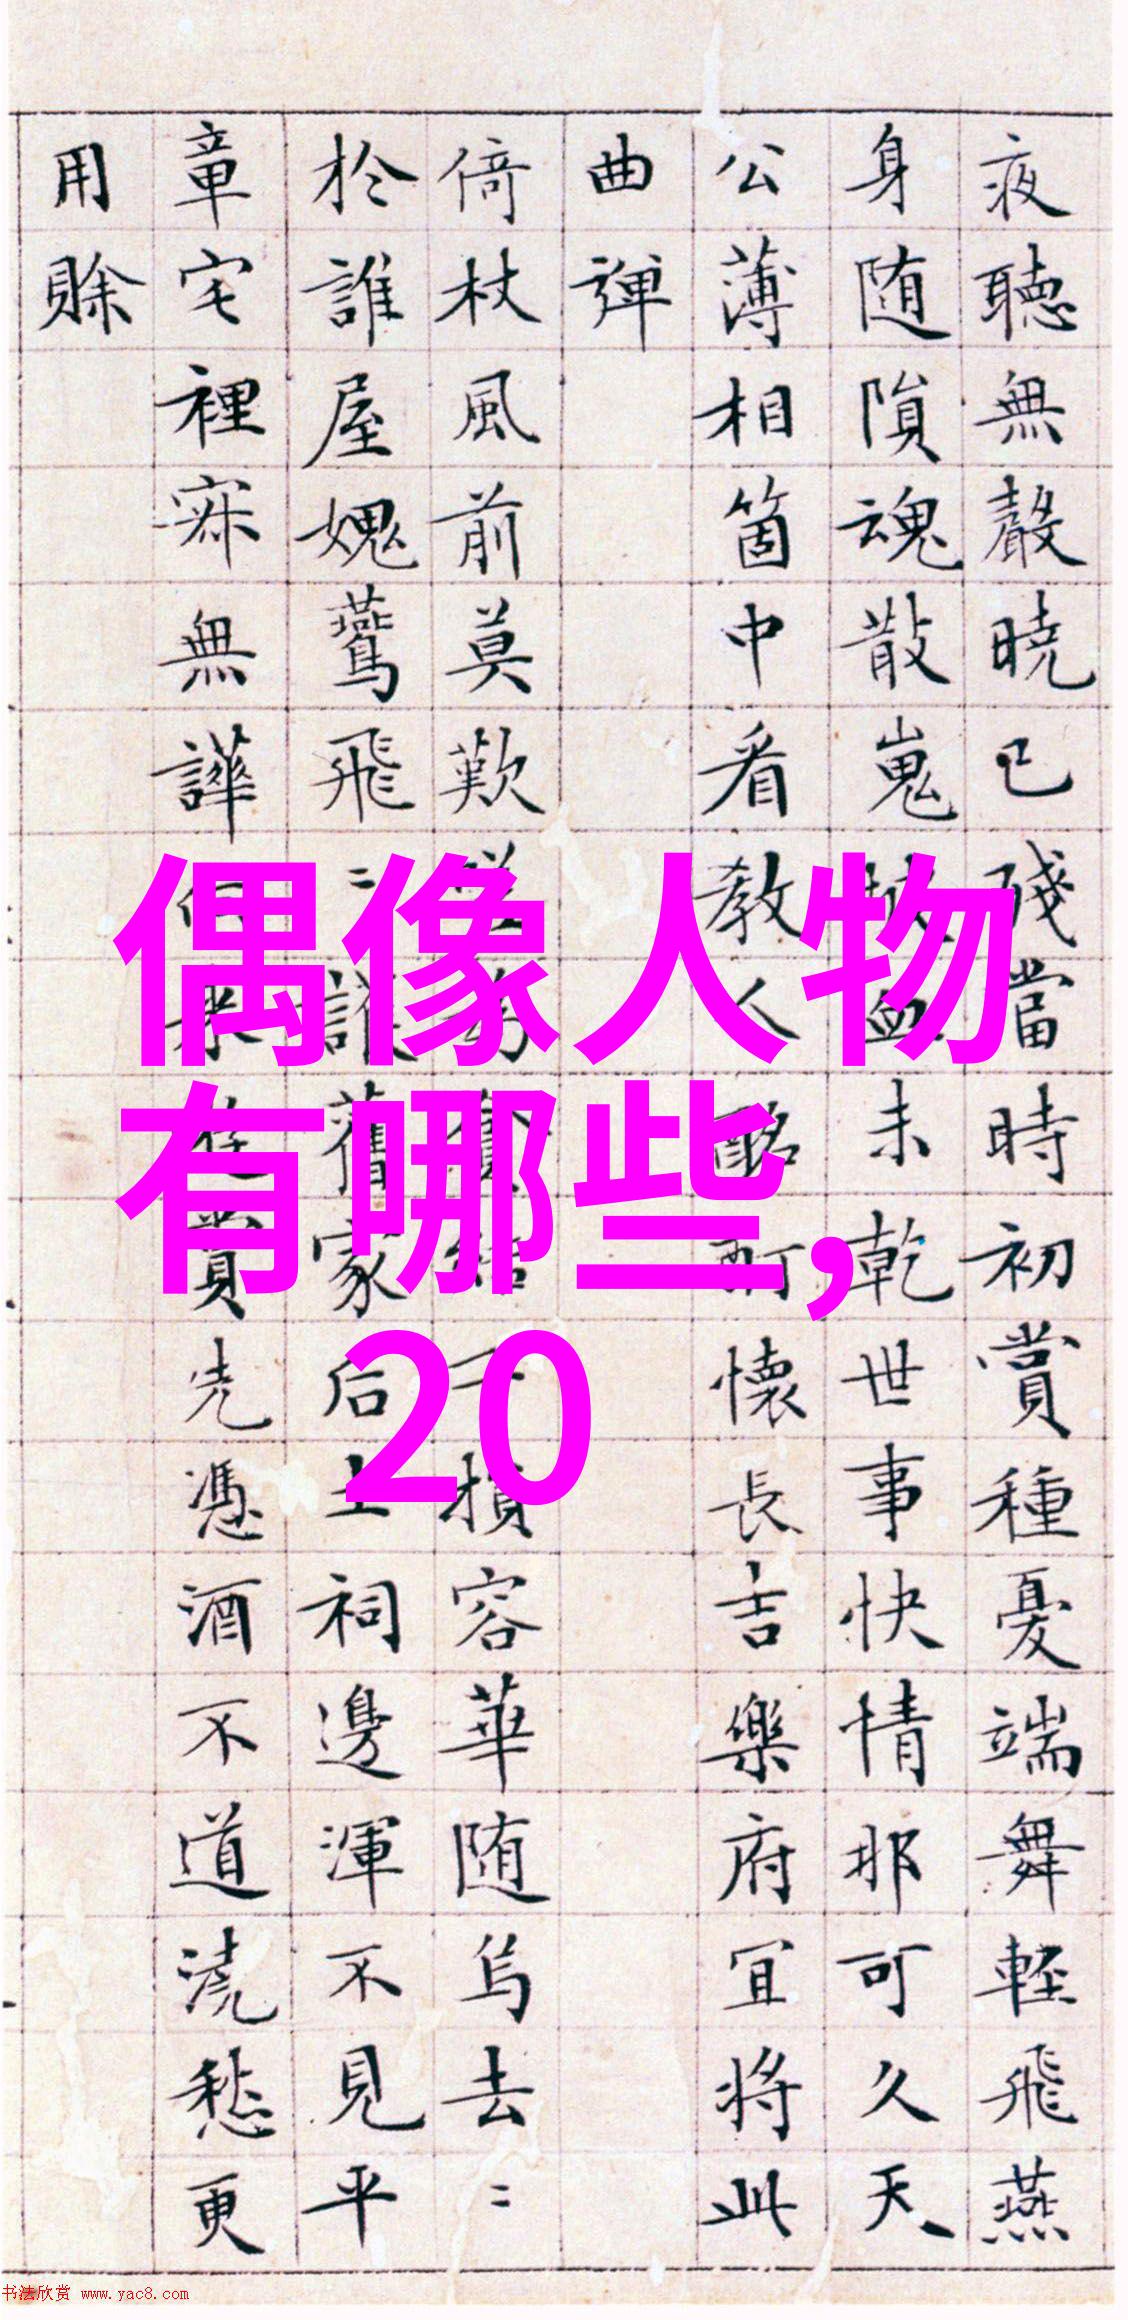 夜聽無聲曉已殘當時初賞種憂端舞輕飛燕
身随隕魂散嵬血未乾世事快情那可久天
公薄相箇中看教人酩酊懷長吉樂府宜將此
曲彈
倚杖風前莫歎損容華随烏去〻
於誰屋媿鷰飛〻誰舊家后土祠邊渾不見平
章宅裡寐無譁來賞先憑酒不道澆愁更
用賒
偶像人物
有哪些,
20
书法欣赏 www.yac8.com